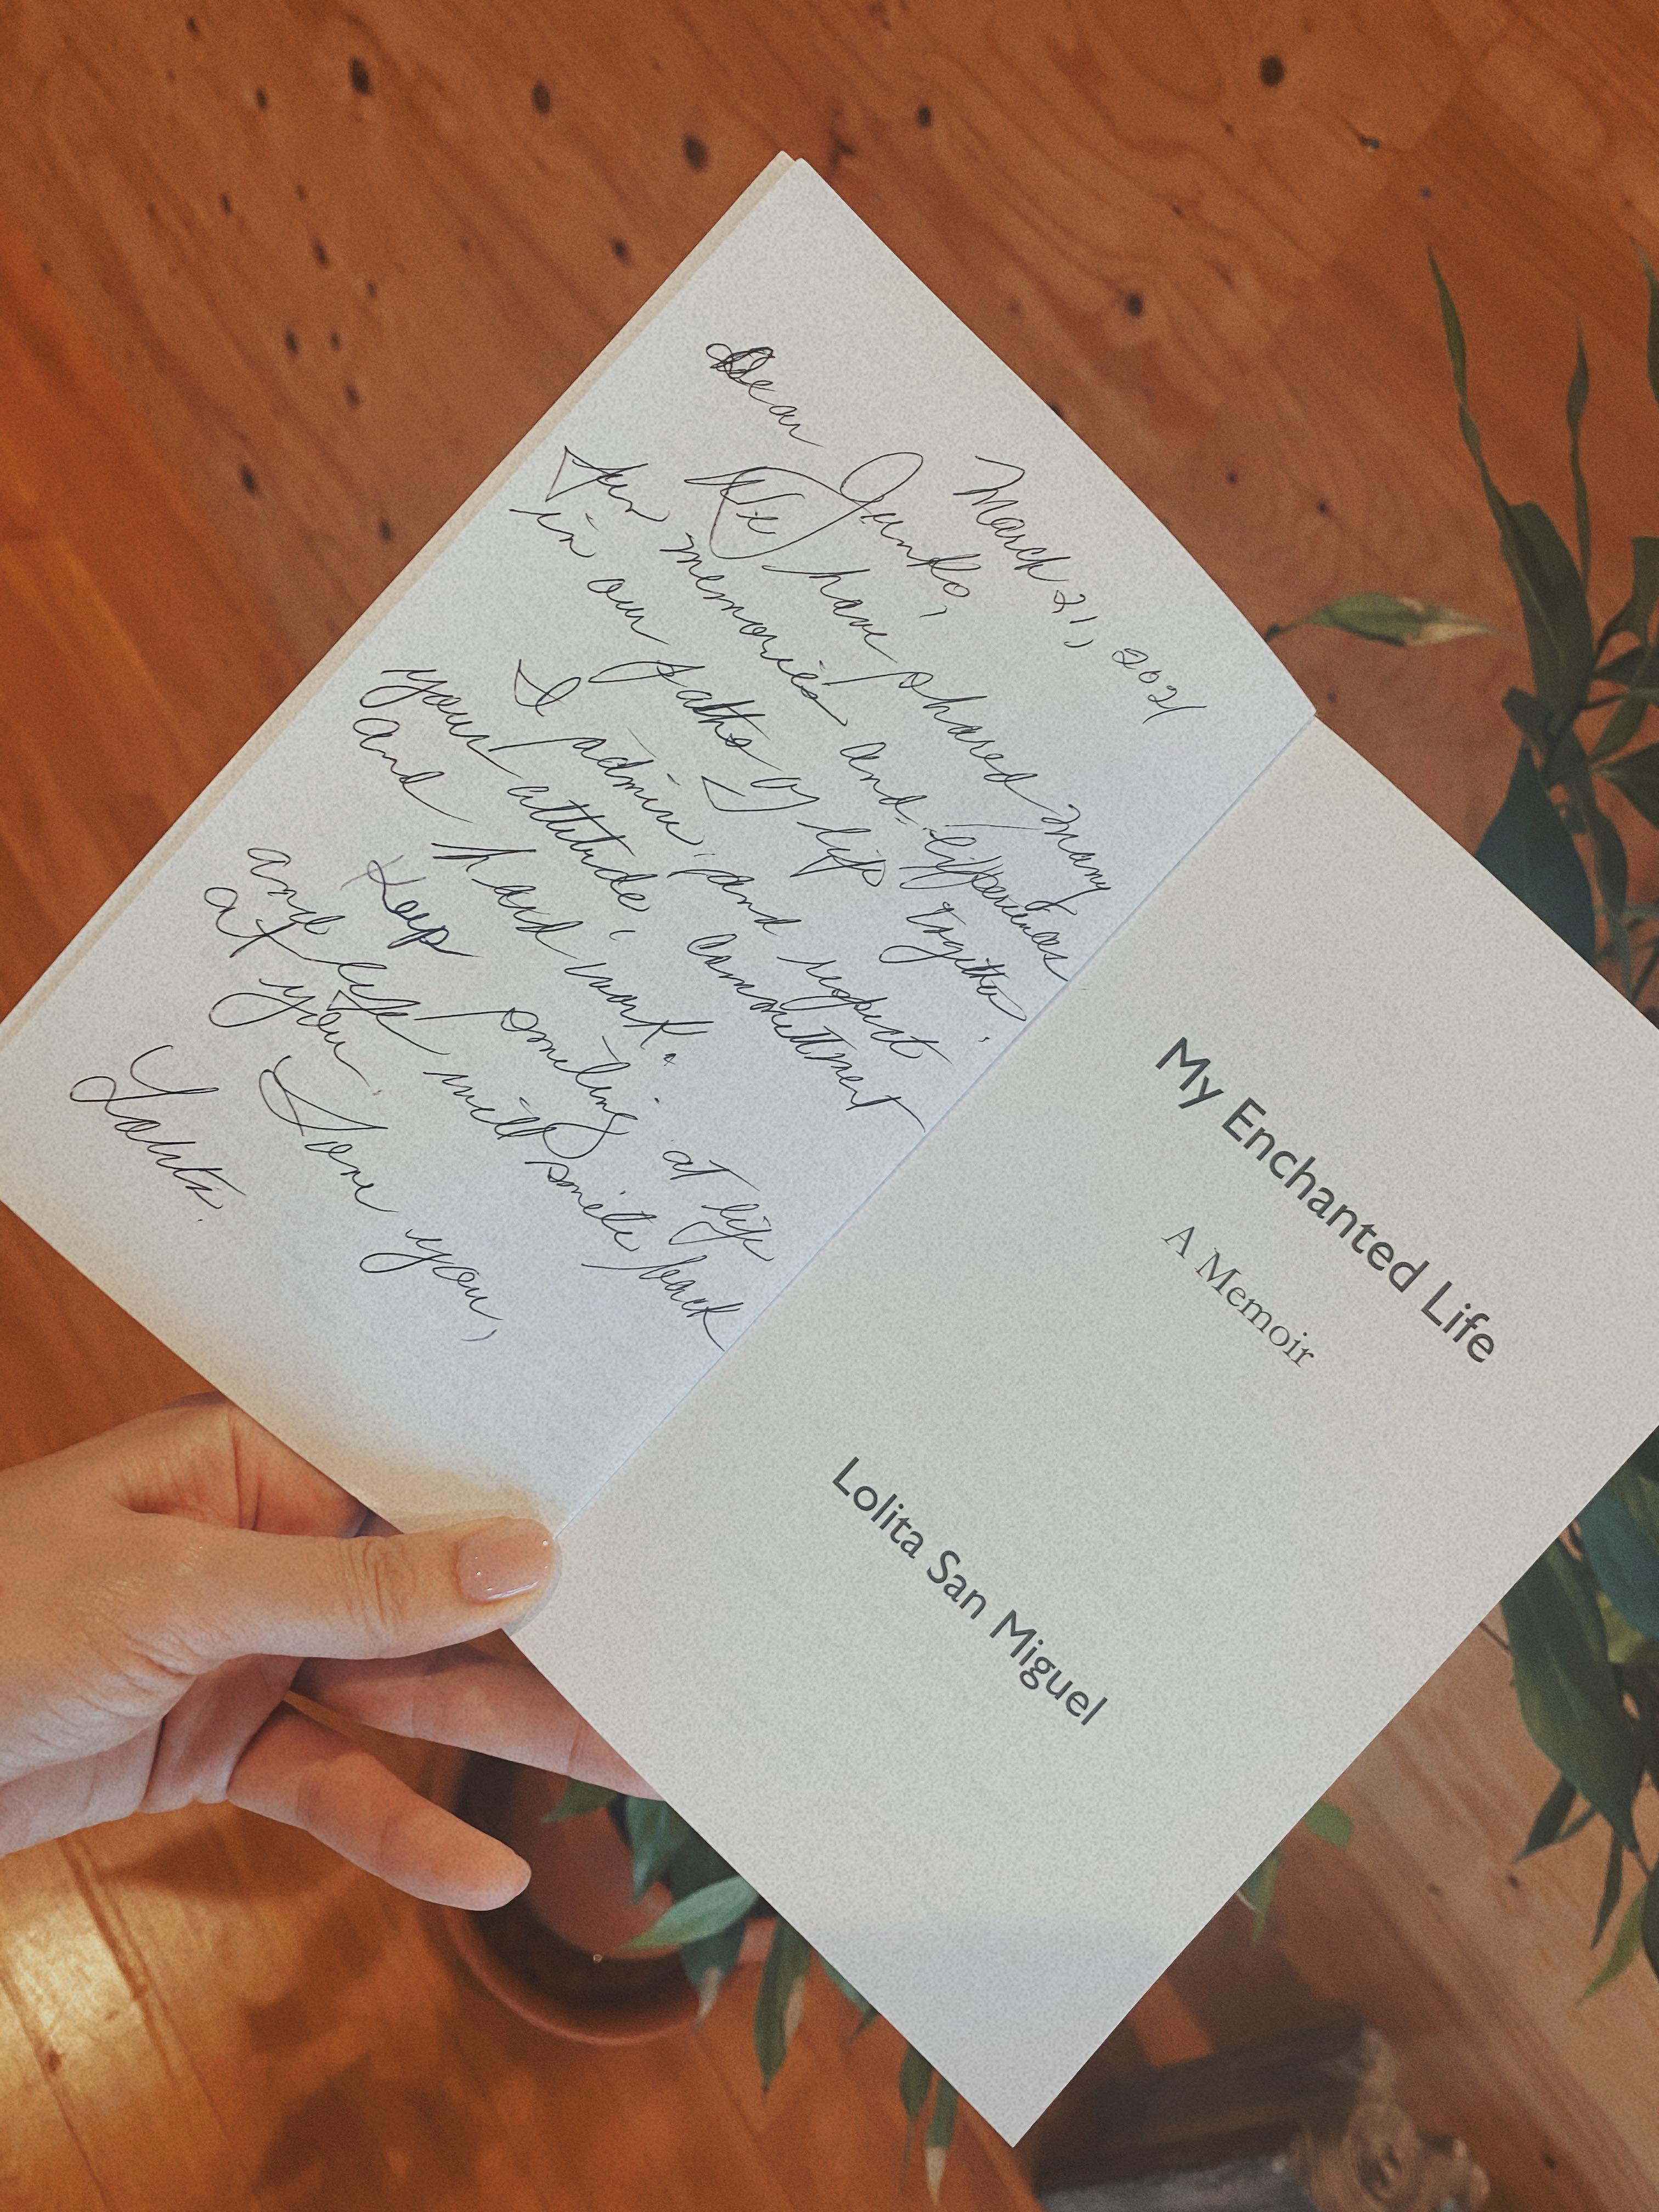 March 21, 2021
Dear Junko,
We have shared many
fun memories and experiences
in our paths of life together.
I admire and respect
your attitude, committment
and hard work.
Keep smiling at life
and life will smile back
at you.
Love you,
Lolita.
My Enchanted Life
A Memoir
Lolita San Miguel